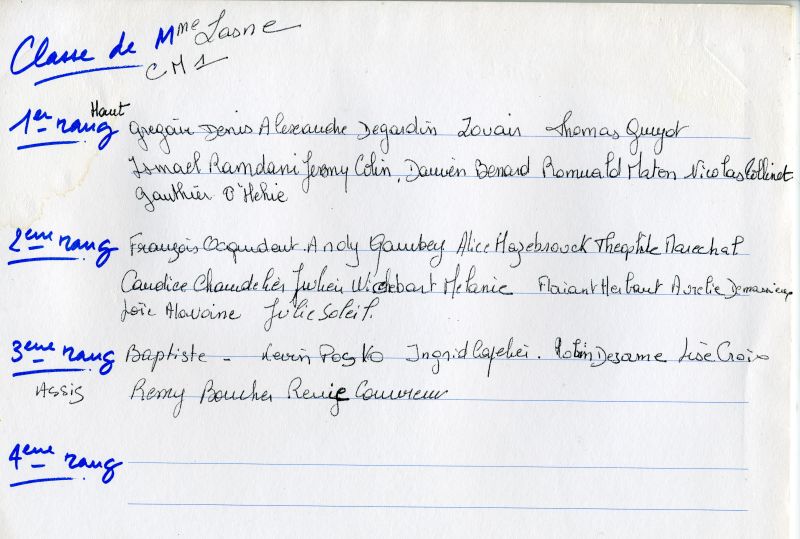 Classe de Mme Lasne
CM1
1er rang Haut Gregoire Denis Alexandre Degardin Zouair Thomas Guyot
Ismael Ramdani Jeremy Colin, Damien Benard Romuald Maton Nicolas Collinet
Gauthier D'Hehie
2eme rang François Andy Gambey Alice Hazebrouck Theophile Marechal
Candice Chandelier Julien Wickebart Melanie Herbaut Aurelie
Loïc Alavoine Julie Soleil.
3eme rang Baptiste - Kevin Posko Ingrid Robin Desame Lise Croix
Assis Remy Boucher Renie Couvreur
4eme rang